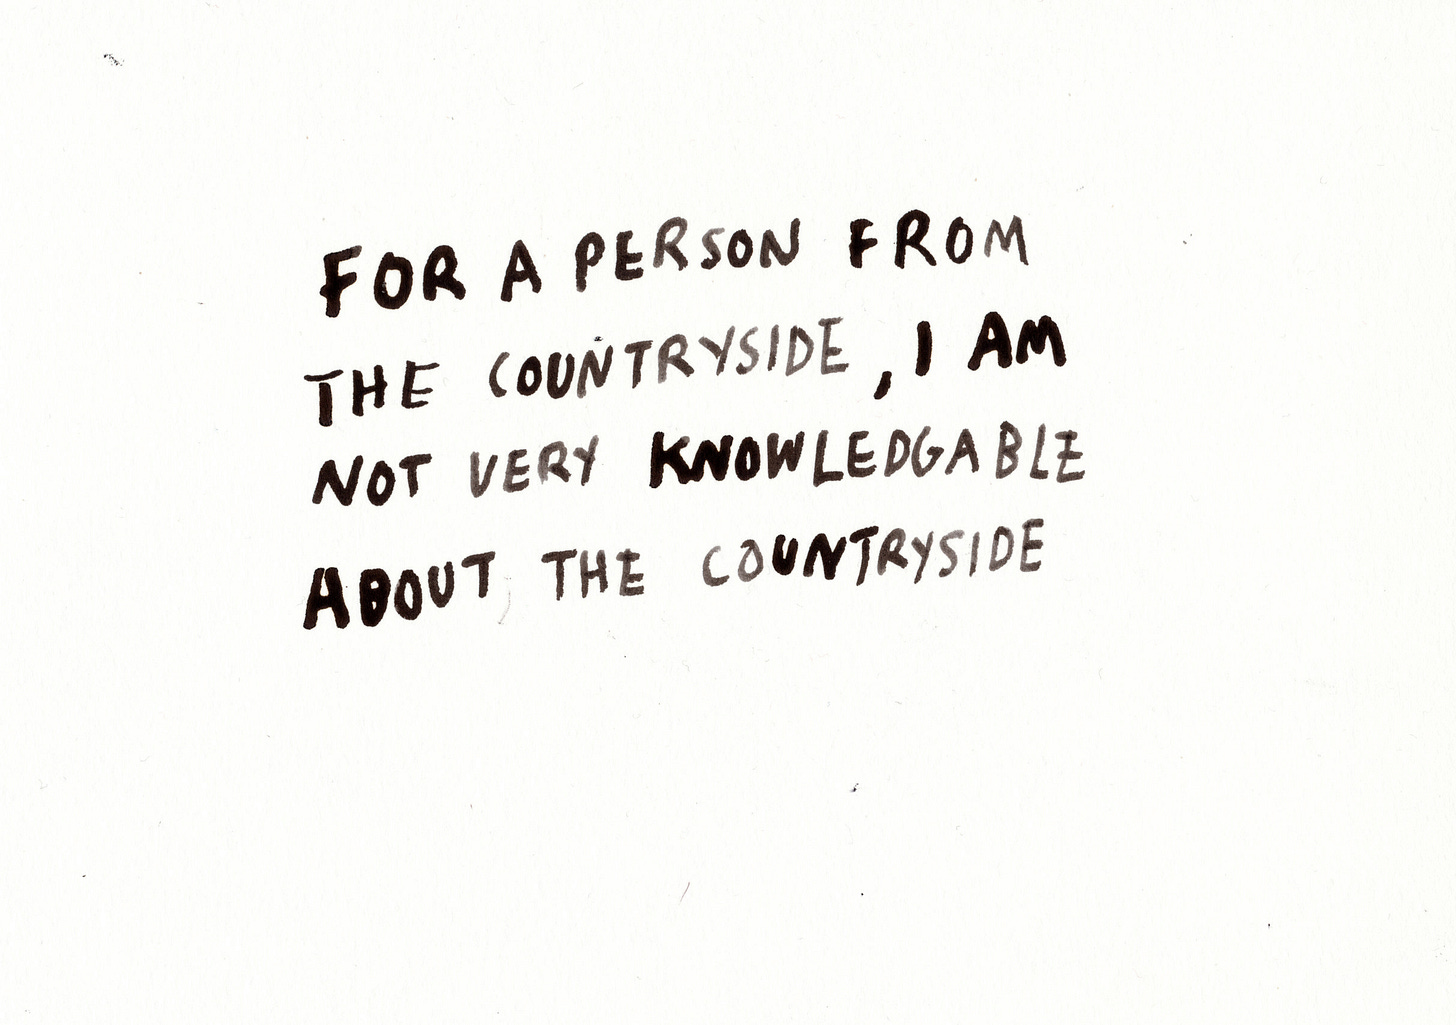 FOR A PERSON FROM
THE COUNTRYSIDE, I AM
NOT VERY KNOWLEDGABLE
ABOUT THE COUNTRYSIDE